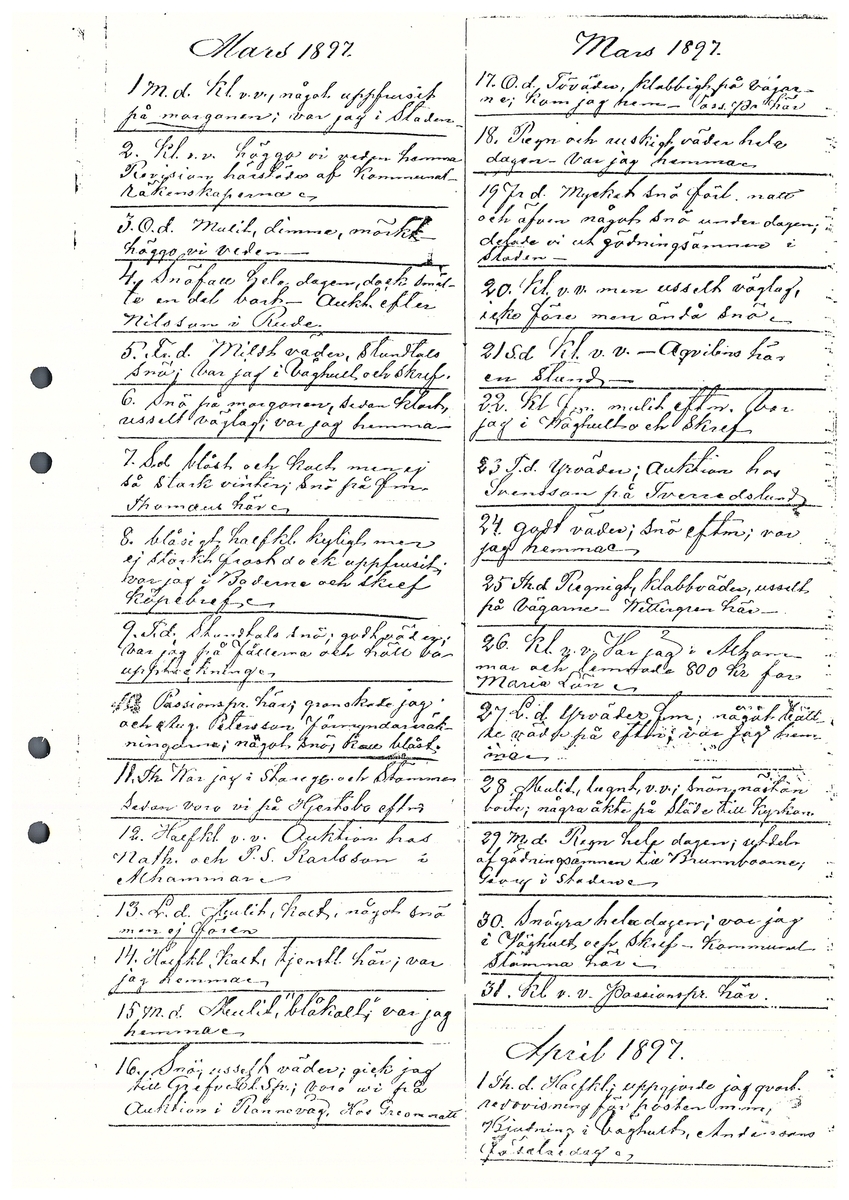 Mars 1897.
1 M.d. Kl. v.v., något uppfruset
på morgonen; var jag i Staden
2. Kl. v.v. höggo vi veden hemma
Revision härstädes af Kommunal-
räkenskaperna
3. O.d. Mulit, dimma, mörkt
höggo vi veden
4. Snöfall hela dagen, dock smäl-
te en del bort - Aukt. efter
Nilsson i Rude.
5. Fr.d. Mildt väder, stundtals
snö; var jag i Våghult och Skref.
6. Snö på morgonen, sedan klart,
usselt väglag; var jag hemma
7. Sd blåst och kallt men ej
så stark vinter; snö på fm.
Thomaus här
8. blåsigt halfkl. kyligt men
ej störkt frost dock uppfruset;
var jag i Boderne och Skref
Köpebref
9. T.d. Stundtals snö; godt väder;
var jag på Fållerna och höll
uppteckning
Passionspr. här; granskade jag
och Aug. Petersson Förmyndareräk-
ningarne; något snö; kall blåst.
11. Th War jag i Skaregg. och Stommen
sedan voro vi på Hjertsbo eftm
12. Halfkl. v.v. Auktion hos
Nath. och P.S. Karlsson i
Alhammar
13. L.d. Mulit, kallt, något snö
men ej
14. Halfkl, kallt, tjenstl. här; var
jag hemma
15 M.d. Mulit, "blåkallt"; var jag
hemma
16. Snö; usselt väder; gick jag
till Sp; voro vi på
Auktion i Rånnevåg. Hos Greon natt
Mars 1897.
17. O.d. Töväder, klabbigt på vägar-
ne; kom jag hem - Pass.pr här
18. Regn och ruskigt väder hela
dagen - var jag hemma
19 Fr d. Mycket snö förl. natt
och äfven något snö under dagen;
delade vi ut gödningsämnen i
Staden
20. Kl. v.v. men usselt väglag,
icke före men ändå snö
21 S.d Kl. v.v. - Aqvilins här
en stund
22. Kl fm. mulit eftm. Var
jag i Wåghult och Skref
23 T.d. Yrväder; Auktion hos
Svensson på Tverredslund
24. godt väder; snö eftm; var
jag hemma
25 Th.d Regnigt, klabbväder, usselt
på vägarne - Wettergren här
26. Kl v.v. Var jag i Alham
mar och lemnade 800 kr for
Maria Lön
27 L.d. Yrväder fm; något bätt-
re väder på eftm; var jag hem
ma
28. Mulit, lugnt, v.v.; snön nästan
borte; några åkte på släde till kyrkan
29 M.d. Regn hela dagen; utdeln.
af gödningsämnen till Brunnboarne;
Georg i Staden
30. Snöyra hela dagen; var jag
i Våghult och Skref - Kommunal
Stämma här
31. Kl v.v. Passionspr. här.
April 1897.
1 Th.d. Halfkl; uppgjorde jag qvart.
redovisning för posten m.m,
Bjudning i Våghult, Anderssons
födelsedag